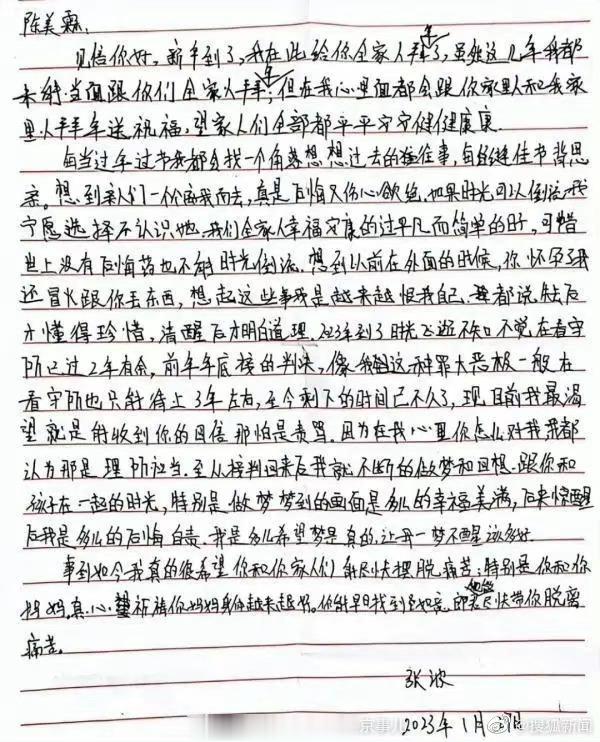 陈美霖:
见信你好,新年到了,我在此给你全家人拜年了,虽然这几年我都
未能当面跟你们全家人拜年,但在我心里面都会跟你家里人和我家
里人拜年送祝福,望家人们全部都平平安安健健康康.
每当过年过节我都会找一个角落想想过去的往事,每逢佳节倍思
亲。想到亲人们一个个离我而去,真是后悔又伤心欲绝,如果时光可以倒流我
宁愿选择不认识她,我们全家人幸福安康的过平凡而简单的日,可惜
世上没有后悔药也不能时光倒流.想到以前在外面的时候,你怀孕了我
还冒火跟你丢东西,想起这些事我是越来越恨我自己.都说,失后
才懂得珍惜,清醒后才明白道理.2023年到了时光飞逝不知不觉在看守
所已过2年有余,前年年底接的判决,像我们这种罪大恶极一般在
看守所也只能待上3年左右,至今剩下的时间已不久了,现目前我最渴
望就是能收到你的回信那怕是责骂.因为在我心里你怎么对我我都
认为那是理所应当.至从接判回来后我就不断的做梦和回想.跟你和
孩子在一起的时光,特别是做梦梦到的画面是多么的幸福美满,后来惊醒
后我是多么的后悔自责.我是多么希望梦是真的,让再一梦不醒该多好.
事到如今我真的很希望你和你家人们能尽快摆脱痛苦,特别是你和你
妈妈,真心祈祷你妈妈身体越来越好。你能早日找到,尽快带你脱离
痛苦。
张波
2023年1月
京事儿 @搜狐新闻